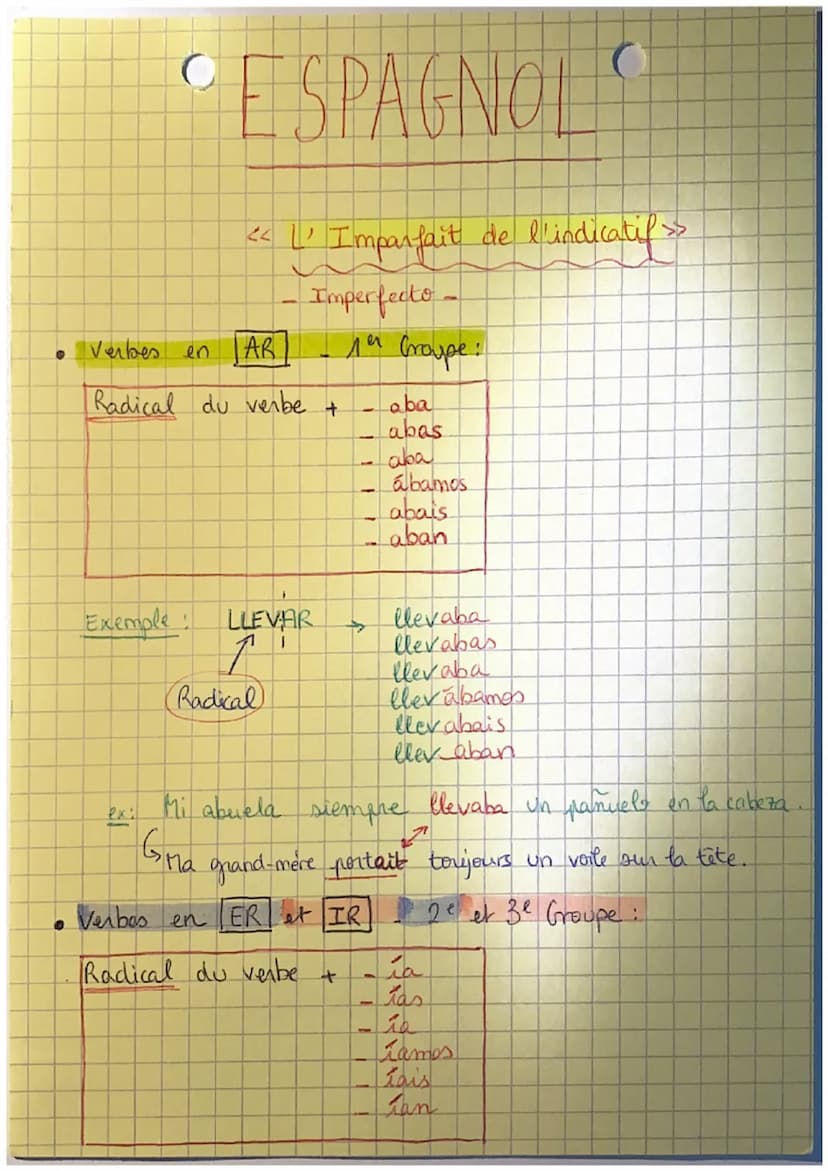 ESPAGNOL
<< L'Imparfait de l'indicatif >>
- Imperfecto -
• Verbes en AR - 1er Groupe :
Radical du verbe + - aba
- abas
- aba
- ábamos
- abais
- aban
Exemple : LLEVAR → llevaba
llevabas
llevaba
Radical llevábamos
llevabais
llevaban
ex: Mi abuela siempre llevaba un pañuelo en la cabeza.
Ma grand-mère portait toujours un voile sur la tête.
• Verbes en ER et IR - 2e et 3e Groupe :
Radical du verbe + - ía
- ías
- ía
- íamos
- íais
- ían